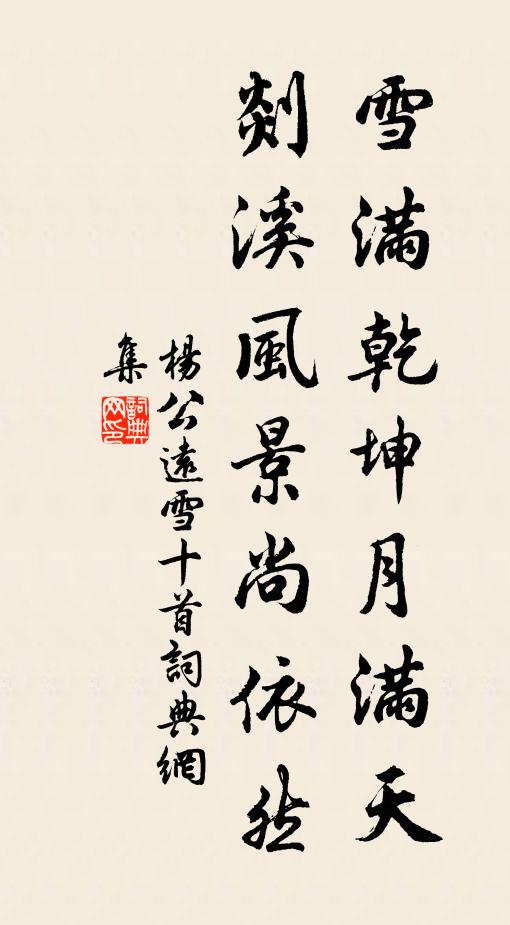 雪滿乾坤月滿天
剡溪風景尚依然
楊公遠雪十首詞典網
集
詞典網印